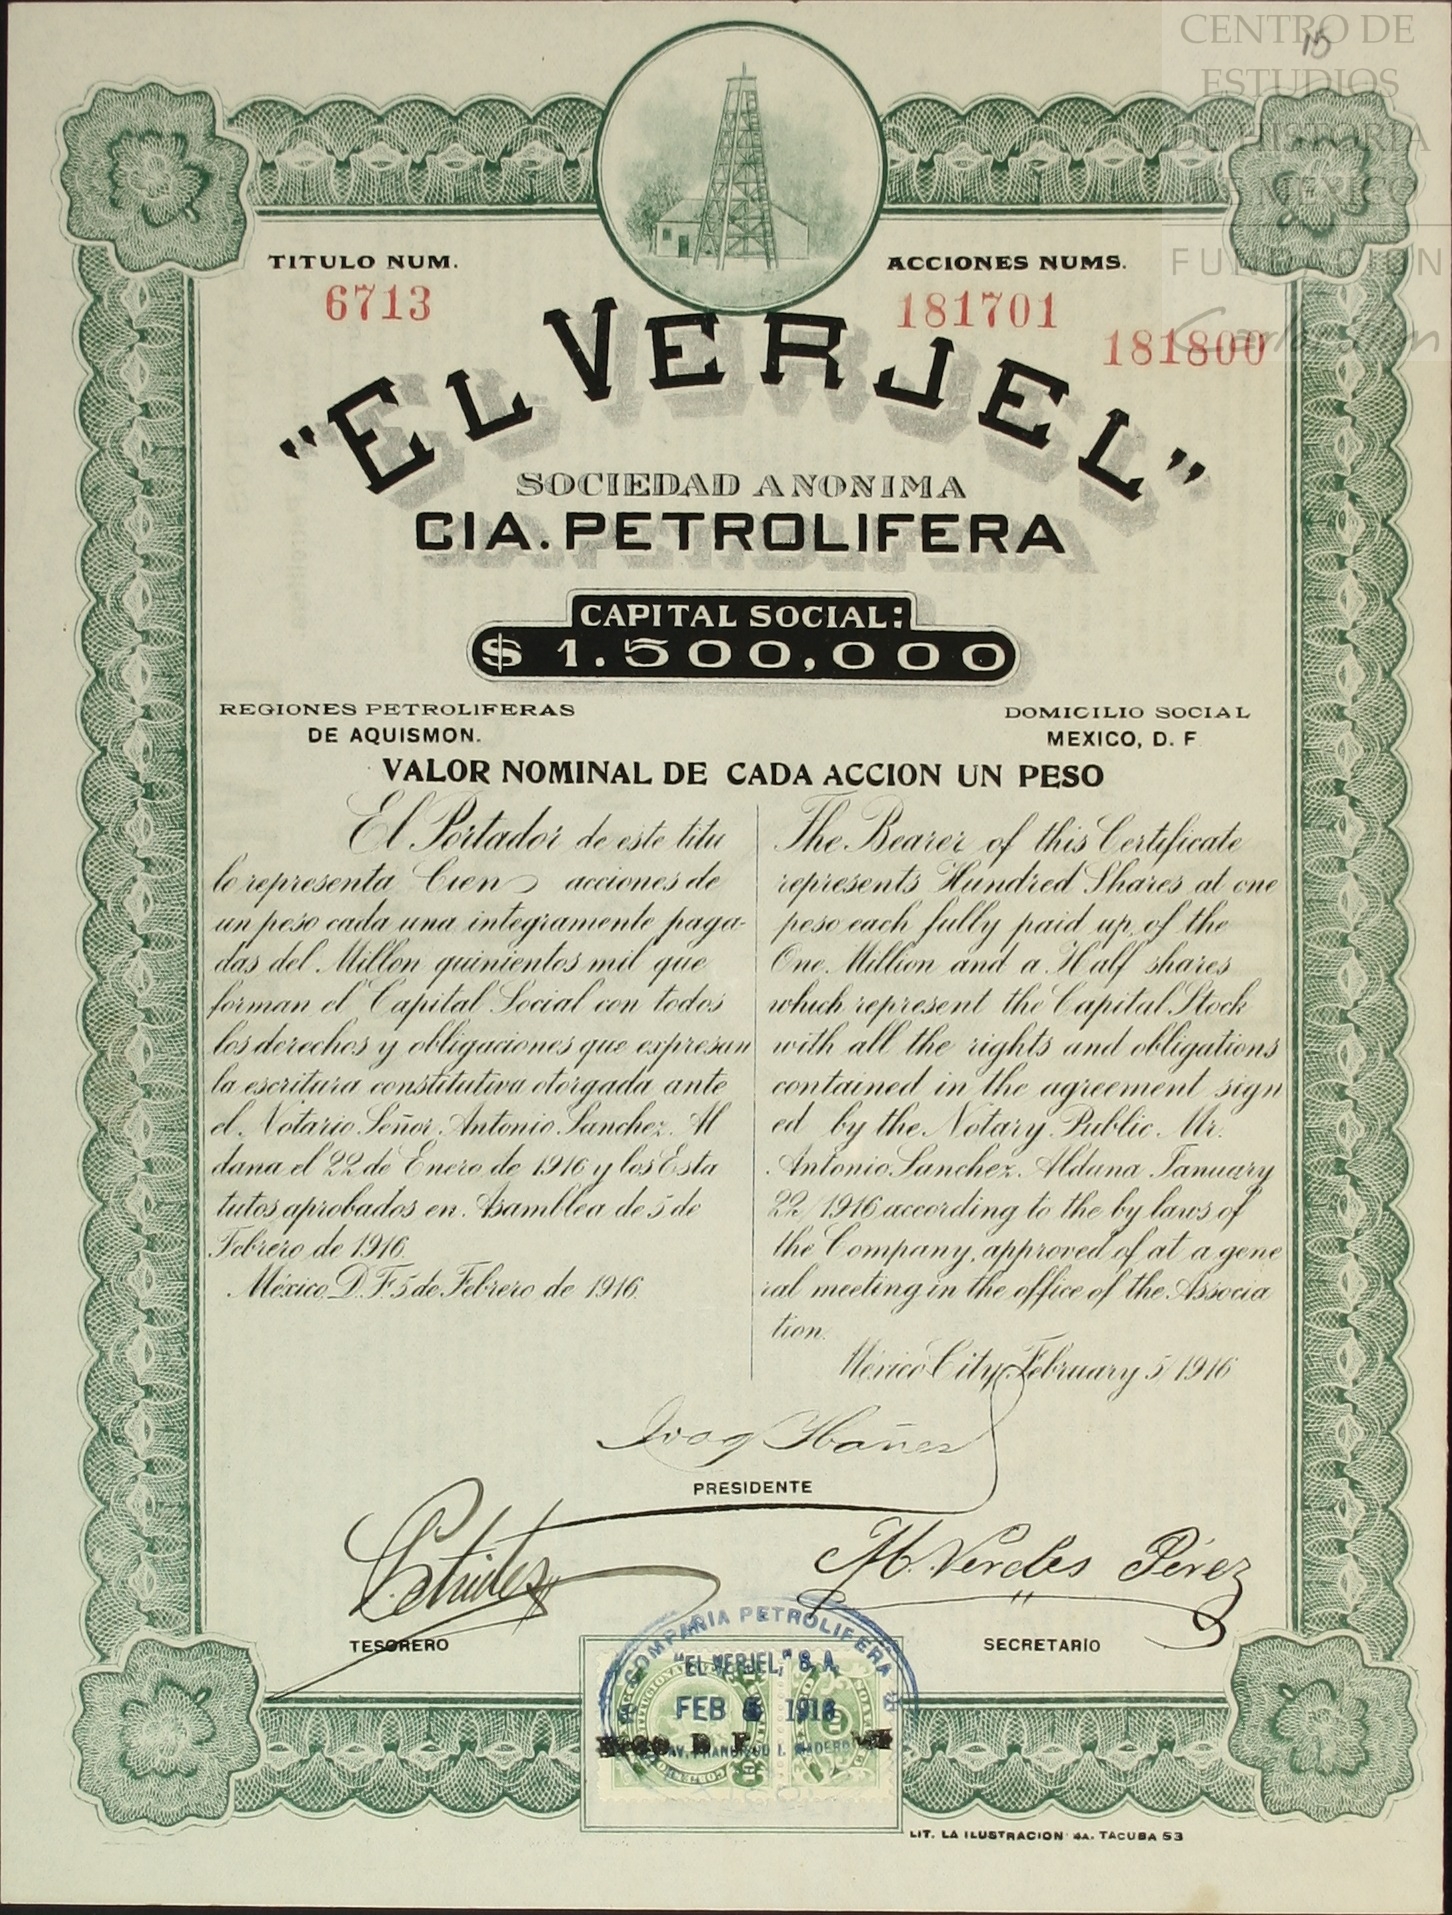 CENTRO DE
ESTUDIOS
DE HISTORIA
DE MEXICO
FUNDACIÓN
Carlos Slim
15
TITULO NUM.
6713
ACCIONES NUMS.
181701
181800
"EL VERJEL"
SOCIEDAD ANONIMA
CIA. PETROLIFERA
CAPITAL SOCIAL:
$ 1.500,000
REGIONES PETROLIFERAS
DE AQUISMON.
DOMICILIO SOCIAL
MEXICO, D. F
VALOR NOMINAL DE CADA ACCION UN PESO
El Portador de este titu
lo representa Cien acciones de
un peso cada una integramente paga-
das del Millon quinientos mil que
forman el Capital Social con todos
los derechos y obligaciones que expresan
la escritura constitutiva otorgada ante
el Notario Señor Antonio Sanchez Al
dana el 22 de Enero de 1916 y los Esta
tutos aprobados en Asamblea de 5 de
Febrero de 1916.
México D. F. 5 de Febrero de 1916.
The Bearer of this Certificate
represents Hundred Shares at one
peso each fully paid up, of the
One Million and a Half shares
which represent the Capital Stock
with all the rights and obligations
contained in the agreement sign
ed by the Notary Public Mr.
Antonio Sanchez Aldana January
22/1916 according to the by laws of
the Company, approved of at a gene
ral meeting in the office of the Associa
tion.
México City February 5/1916
Joaq Ibañez
PRESIDENTE
M. Verdes Pérez
TESORERO
SECRETARIO
COMPAÑIA PETROLIFERA
"EL VERJEL," S. A.
FEB 1916
AV. FRANCISCO I. MADERO
LIT. LA ILUSTRACION 4A. TACUBA 53